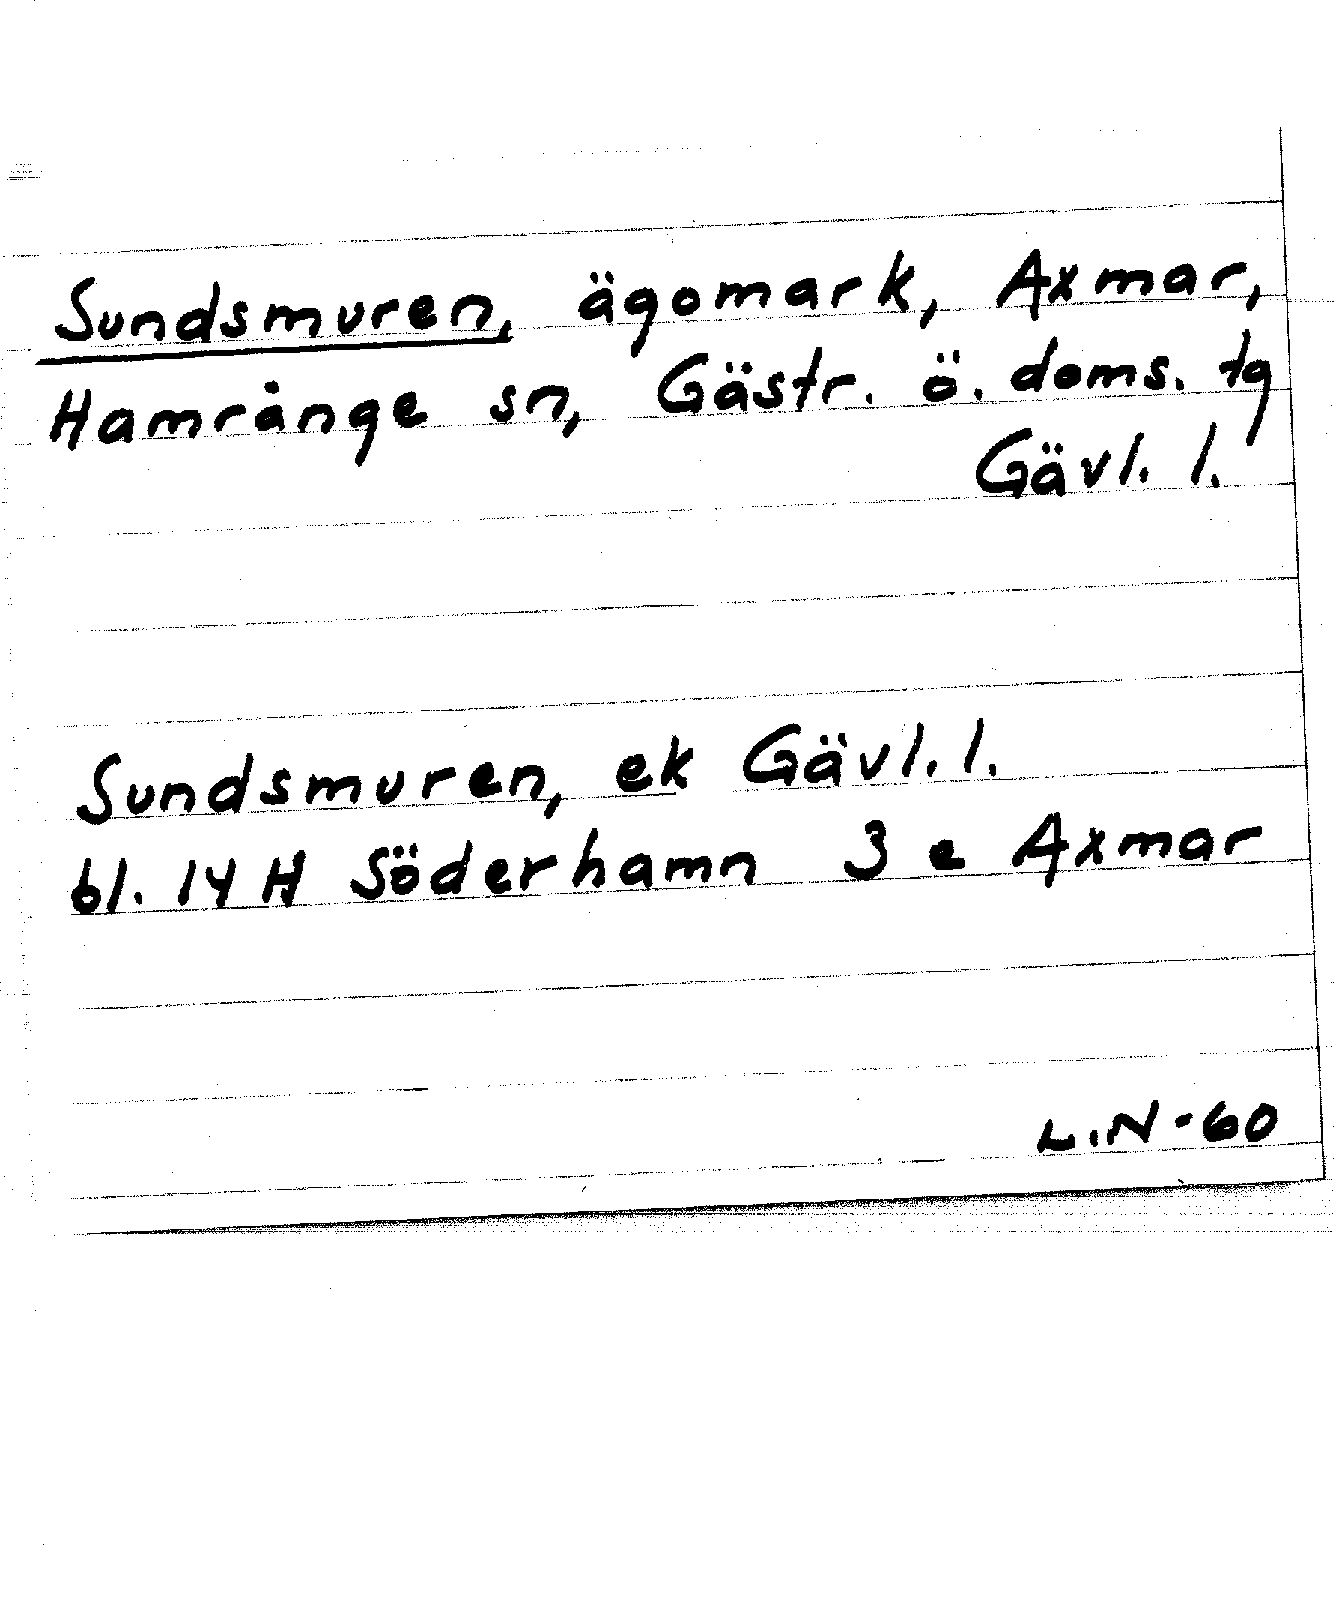 Sundsmuren, ägomark, Axmar,
Hamrånge sn, Gästr. ö. doms. tg
Gävl. l.
Sundsmuren, ek Gävl. l.
bl. 14 H Söderhamn 3 e Axmar
L.N-60